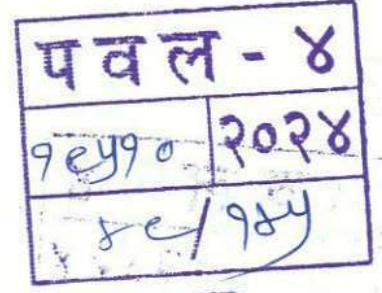 पवल - ४
१९५१० २०२४
४९/१४५